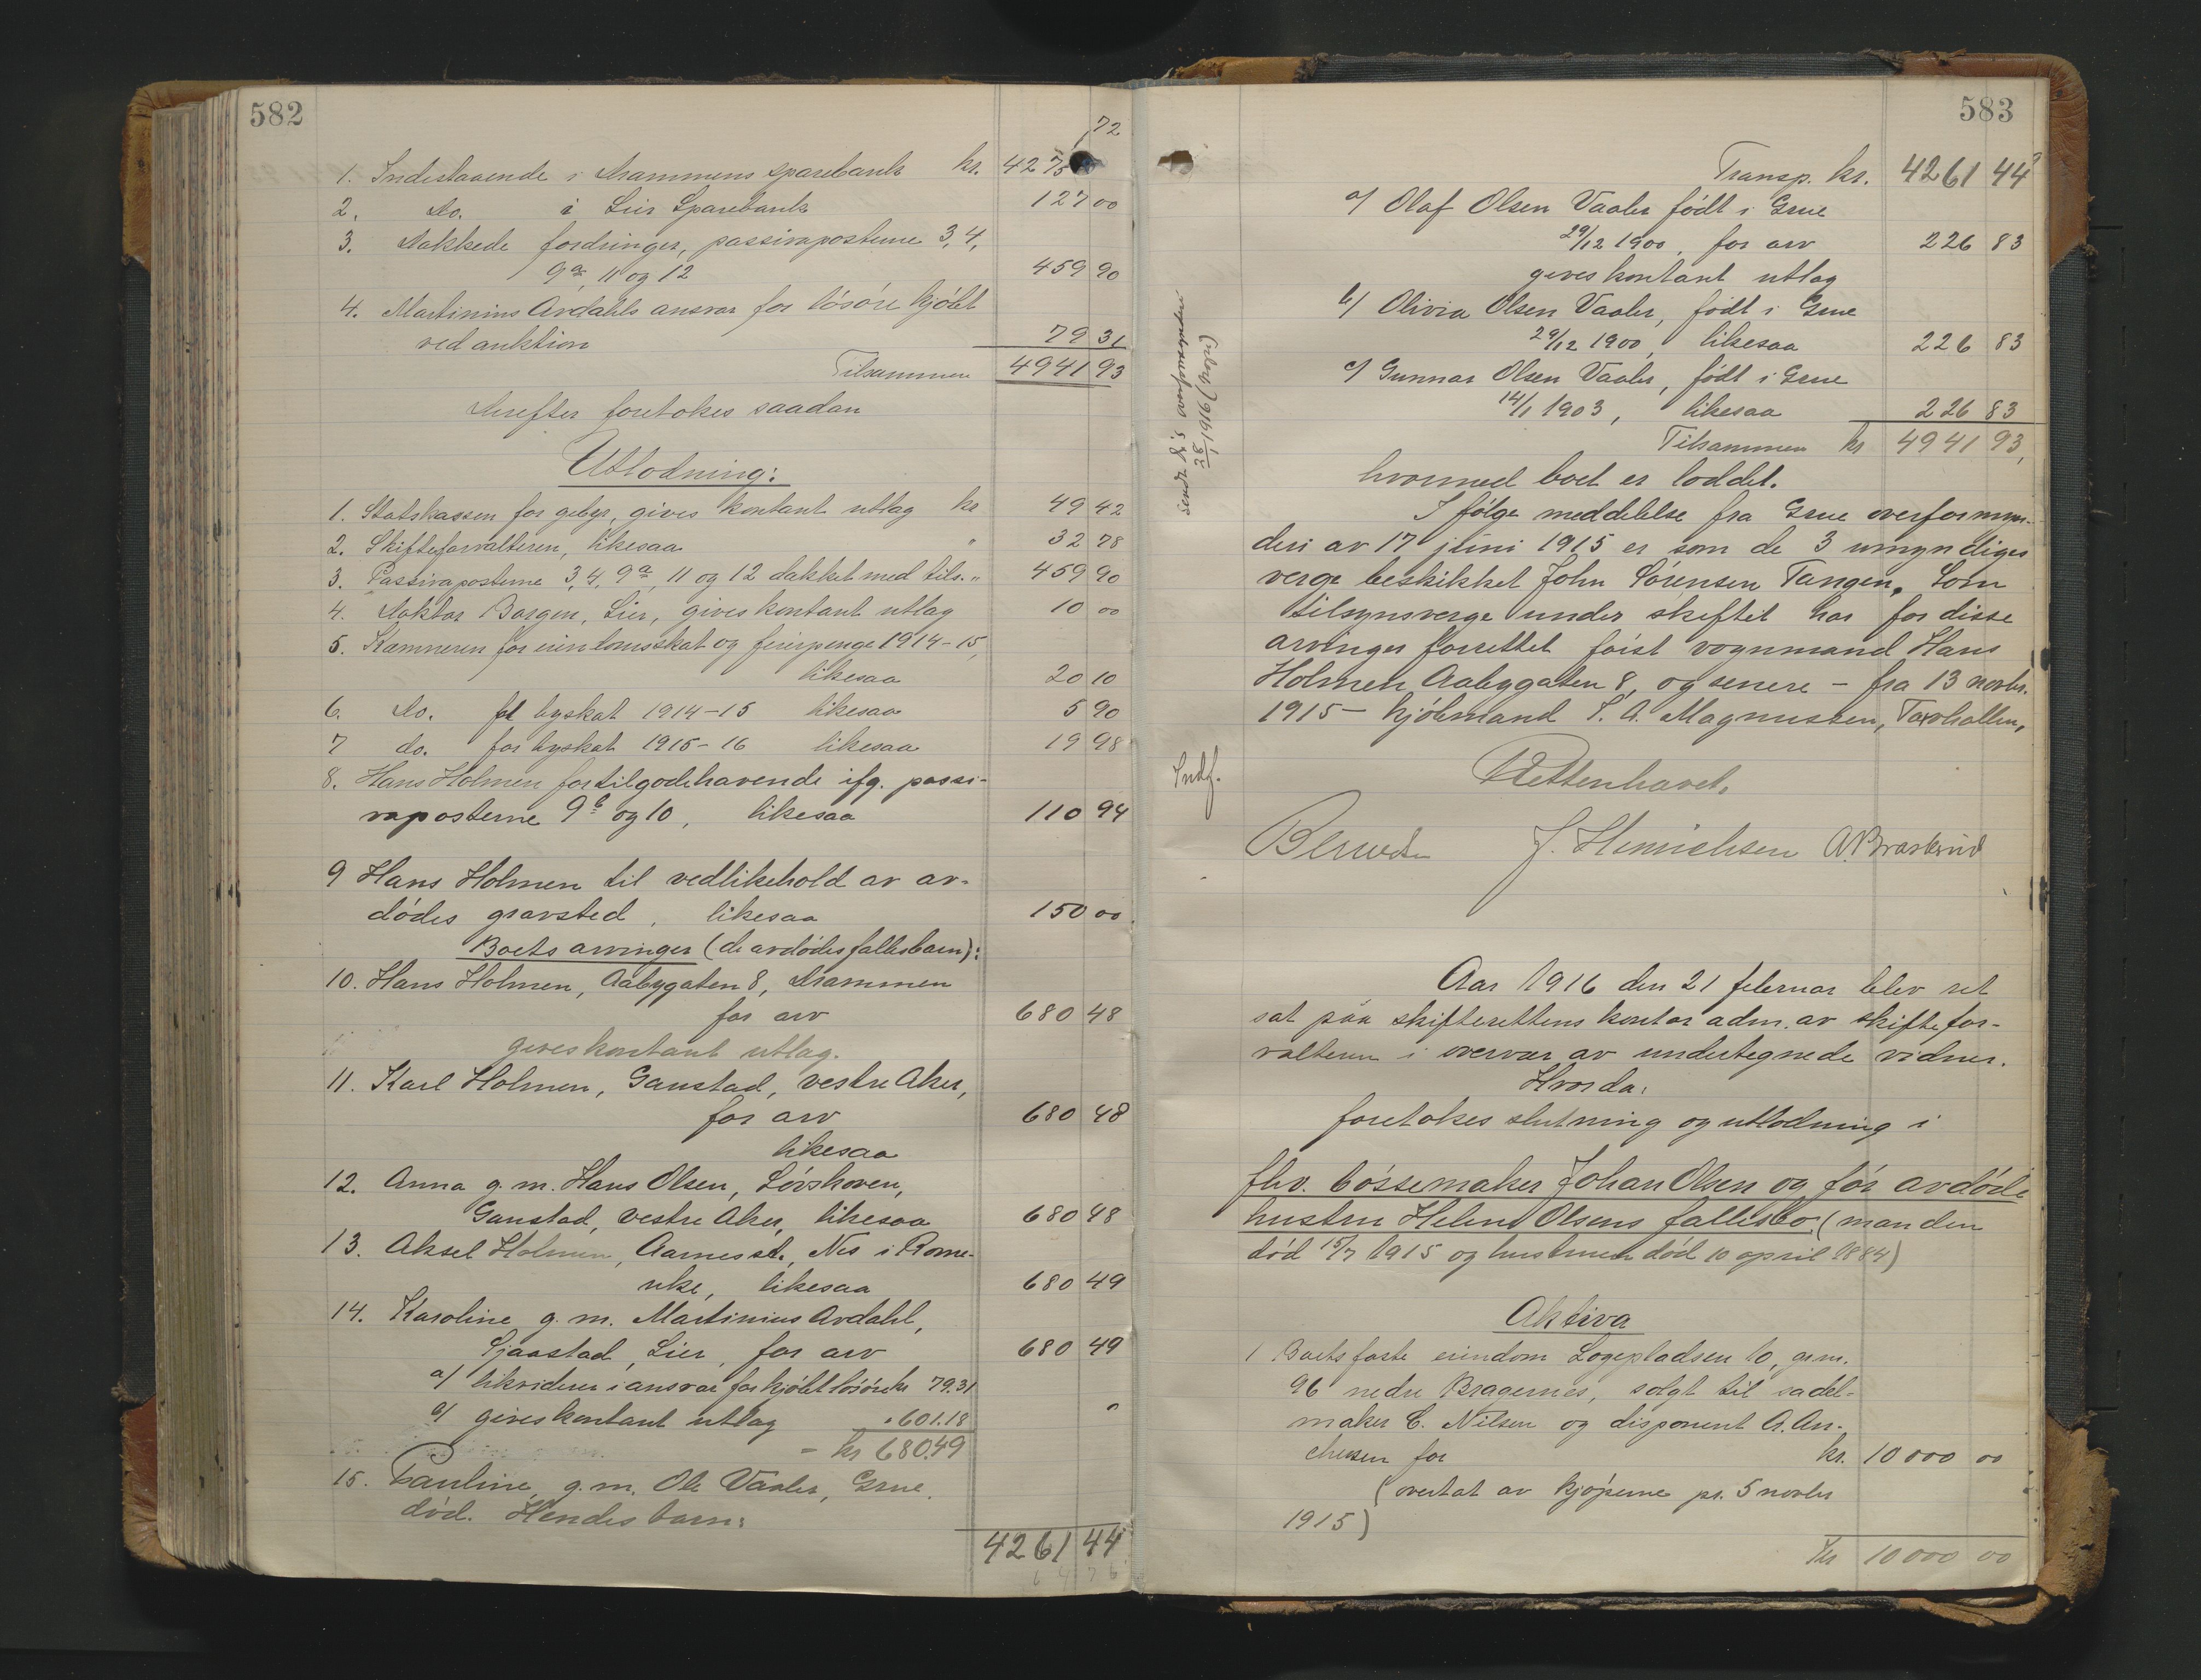 582
72
1. Indestaaende i Drammens Sparebank kr. 4275
2. Do. i Lier Sparebank 127 00
3. Dækkede fordringer, passivaposterne 3, 4,
9a, 11 og 12 459 90
4. Martinius Avdahls ansvar for lösöre kjöbt
ved auktion 79 31
Tilsammen 4941 93
Derefter foretokes saadan
Utlodning:
1. Statskassen for gebyr, gives kontant utlæg kr 49 42
2. Skifteforvalteren, likesaa " 32 78
3. Passivaposterne 3, 4, 9a, 11 og 12 dækket med tils. " 459 90
4. Doktor Borgen, Lier, gives kontant utlæg 10 00
5. Kæmneren for eiendomsskat og feierpenge 1914-15,
likesaa 20 10
6. Do. for byskat 1914-15 likesaa 5 90
7 do. for byskat 1915-16 likesaa 19 98
8. Hans Holmen for tilgodehavende ifg. passi-
vaposterne 9b og 10, likesaa 110 94
9 Hans Holmen til vedlikehold av av-
dödes gravsted, likesaa 150 00.
Boets arvinger (de avdödes fællesbarn):
10. Hans Holmen, Aabygaten 8, Drammen
for arv 680 48
gives kontant utlæg.
11. Karl Holmen, Gaustad, vestre Aker,
for arv 680 48
likesaa
12. Anna g. m. Hans Olsen, Lövskoven,
Gaustad, vestre Aker, likesaa 680 48
13. Aksel Holmen, Aarnes st., Nes i Rome-
rike, likesaa 680 49
14. Karoline g. m. Martinius Avdahl,
Sjaastad, Lier, for arv 680 49
a/ likviderer i ansvar for kjöbt lösöre kr 79.31
b/ gives kontant utlæg " 601.18
= kr 680.49
15. Pauline, g. m. Ole Vaaler, Grue,
död. Hendes barn:
4261 44
583
Transp. kr. 4261 44
a/ Olaf Olsen Vaaler født i Grue
29/12 1900, for arv 226 83
gives kontant utlæg
b/ Olivia Olsen Vaaler, født i Grue
29/12 1900, likesaa 226 83
c/ Gunnar Olsen Vaaler, født i Grue
14/1 1903, likesaa 226 83
Tilsammen kr 4941 93,
hvormed boet er loddet.
I følge meddelelse fra Grue overformyn-
deri av 17 juni 1915 er som de 3 umyndiges
verge beskikket John Sörensen Tangen. Som
tilsynsverge under skiftet har for disse
arvinger forrettet först vognmand Hans
Holmen Aabygaten 8, og senere - fra 13 novbr.
1915 - kjöbmand S. A. Magnussen,
Indf.
Retten hævet.
J. Hinrichsen
Aar 1916 den 21 februar blev ret
sat paa skifterettens kontor adm. av skiftefor-
valteren i overvær av undertegnede vidner.
Hvorda:
foretokes slutning og utlodning i
fhv. bössemaker Johan Olsen og før avdöde
hustru Helene Olsens fællesbo (manden
död 15/7 1915 og hustruen död 10 april 1884)
Aktiva
1 Boets faste eiendom Logepladsen 10, gr.nr.
96 nedre Bragernes, solgt til sadel-
maker C. Nilsen og disponent A. An-
dersen for kr. 10 000 00
(overtat av kjöperne pr. 5 novbr
1915)
Kr 10 000 00